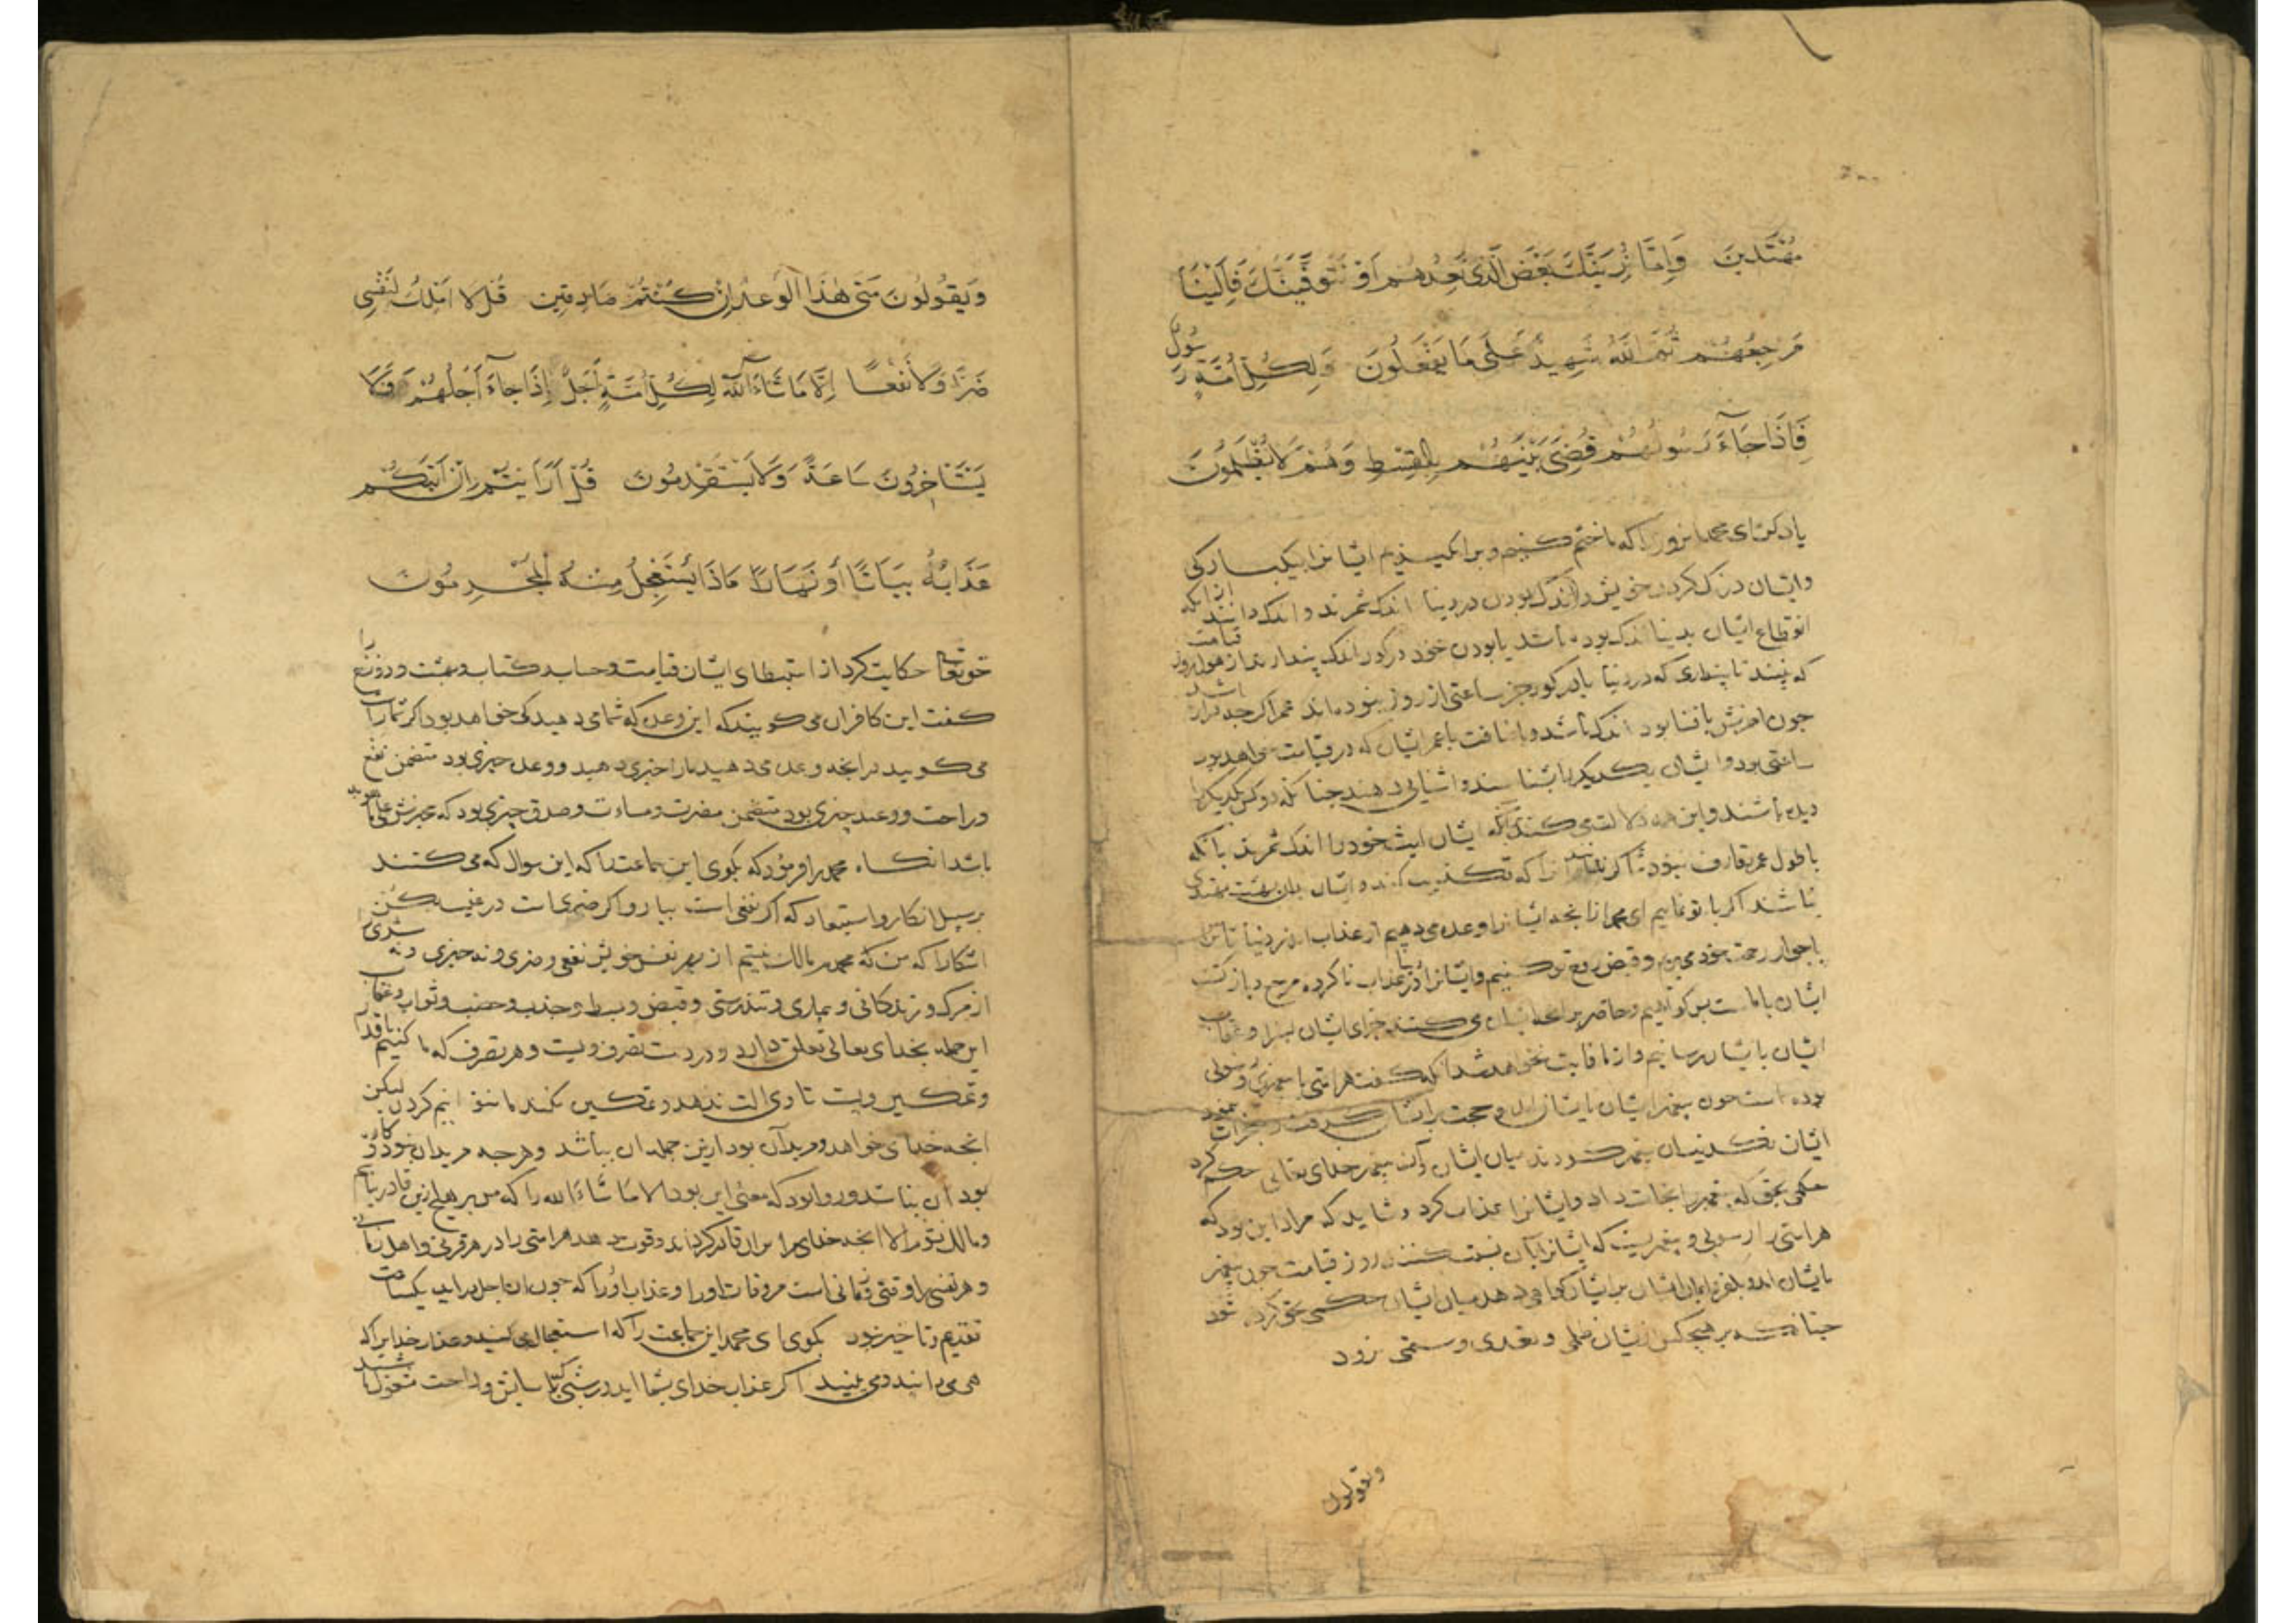 مُهْتَدِينَ وَإِمَّا نُرِيَنَّكَ بَعْضَ الَّذِي نَعِدُهُمْ أَوْ نَتَوَفَّيَنَّكَ فَإِلَيْنَا
مَرْجِعُهُمْ ثُمَّ اللَّهُ شَهِيدٌ عَلَى مَا يَفْعَلُونَ وَلِكُلِّ أُمَّةٍ رَسُولٌ
فَإِذَا جَاءَ رَسُولُهُمْ قُضِيَ بَيْنَهُمْ بِالْقِسْطِ وَهُمْ لَا يُظْلَمُونَ
یاد کن ای محمد انروز را که ما ختم کنیم و بر انگیزیم ایشانرا بیکبارگی
وایشان درنک کردن خویش و اندک بودن در دنیا اندک شمرند و اندک دانند از انکه
انقطاع ایشان بدنیا اندک بوده باشد یا بودن خود در کور اندک پندارند از هول روز قیامت
که بینند تا پنداری که در دنیا یا در کور جز ساعتی از روز نبوده‌اند عمر اکر چه دراز باشد
چون اخرش با فنا بود اندک باشد و باضافت با عمر ایشان که در قیامت خواهد بود
ساعتی بود و ایشان یکدیکر را بشناسند و اشنایی دهند چنانکه دو کس یکدیکر را
دیده باشند و این همه دلالت می کند بر انکه ایشان لبث خود را اندک شمرند با انکه
با طول عمر تعارف نبود
نباشد اکر با تو نماییم ای محمد از انچه ایشانرا وعده می دهیم از عذاب اندر دنیا یا ترا
با جوار رحمت خود می بریم و قبض روح تو کنیم و ایشانرا در دنیا عذاب ناکرده مرجع و بازکشت
ایشان با ماست پس کواهیم و حاضر بر انچه ایشان می کنند جزای ایشان بسزا و عقاب
ایشان بایشان رسانیم و از ما فایت نخواهد شد انکه کفت هر امتی را پیغمبری و رسولی
بوده است چون پیغمبر ایشان بایشان اید و حجت بر ایشان
ایشان میان ایشان و آن پیغمبر خدای تعالی حکم کرد
حکمی بحق که پیغمبر را نجات داد و ایشانرا عذاب کرد و شاید که مراد این بود که
هر امتی را رسولی و پیغمبریست که ایشانرا بآن نسبت کنند روز قیامت چون پیغمبر
بایشان اید و بکفر و ایمان ایشان بر ایشان کواهی دهد میان ایشان حکمی بحق کرده شود
چنانکه بر هیچکس از ایشان ظلمی و تعدی و ستمی نرود
ویقولون
وَيَقُولُونَ مَتَى هَذَا الْوَعْدُ إِنْ كُنْتُمْ صَادِقِينَ قُلْ لَا أَمْلِكُ لِنَفْسِي
ضَرًّا وَلَا نَفْعًا إِلَّا مَا شَاءَ اللَّهُ لِكُلِّ أُمَّةٍ أَجَلٌ إِذَا جَاءَ أَجَلُهُمْ فَلَا
يَسْتَأْخِرُونَ سَاعَةً وَلَا يَسْتَقْدِمُونَ قُلْ أَرَأَيْتُمْ إِنْ أَتَاكُمْ
عَذَابُهُ بَيَاتًا أَوْ نَهَارًا مَاذَا يَسْتَعْجِلُ مِنْهُ الْمُجْرِمُونَ
حق تعالی حکایت کرد از استبطای ایشان قیامت و حساب و کتاب و بهشت و دوزخ را
کفت این کافران می کویند که این وعده که شما می دهید کی خواهد بود اکر شما راست
می کویید در انچه وعده می دهید ما را خبری دهید و وعده خبری بود متضمن نفع
و راحت و وعید خبری بود متضمن مضرت و مساءت و صدق خبری بود که مخبرش علی ما هو به
باشد انکاه محمد را فرمود که بکوی این جماعت را که این سوال که می کنند
بر سبیل انکار و استبعاد که اکر نفعی است بیار و اکر ضری است در غیب مکن
اشکارا که من که محمدم مالک نیستم از بهر نفس خویش نفعی و ضری و نه خیری و نه شری را
از مرک و زندکانی و بیماری و تندرستی و قبض و بسط و جذب و خصب و ثواب و عقاب
این جمله بخدای تعالی تعلق دارد و در دست تصرف ویست و هر تصرف که ما کنیم باقدار
و تمکین ویست تا وی الت ندهد و تمکین نکند ما نتوانیم کردن لیکن
انچه خدای خواهد و مرید آن بود ازین جمله ان بباشد و هر چه مرید ان نبود و کاره
بود ان نباشد و روا بود که معنی این بود الا ما شاءَ الله را که من بر هیچ ازین قادر نباشم
و مالک نبوم الا انچه خدای مرا بران قادر کرداند و قوت دهد هر امتی را در هر قرنی و اهل زمانی
و هر نفسی را وقتی و زمانی است مر وفات او را و عذاب او را که چون ان اجل دراید یکساعت
تقدیم و تاخیر نبود بکوی ای محمد این جماعت را که استعجال می کنند و عذاب خدایرا که
می دانید و می بینید اکر عذاب خدای بشما اید در شب که شما بآسایش و راحت مشغول باشید